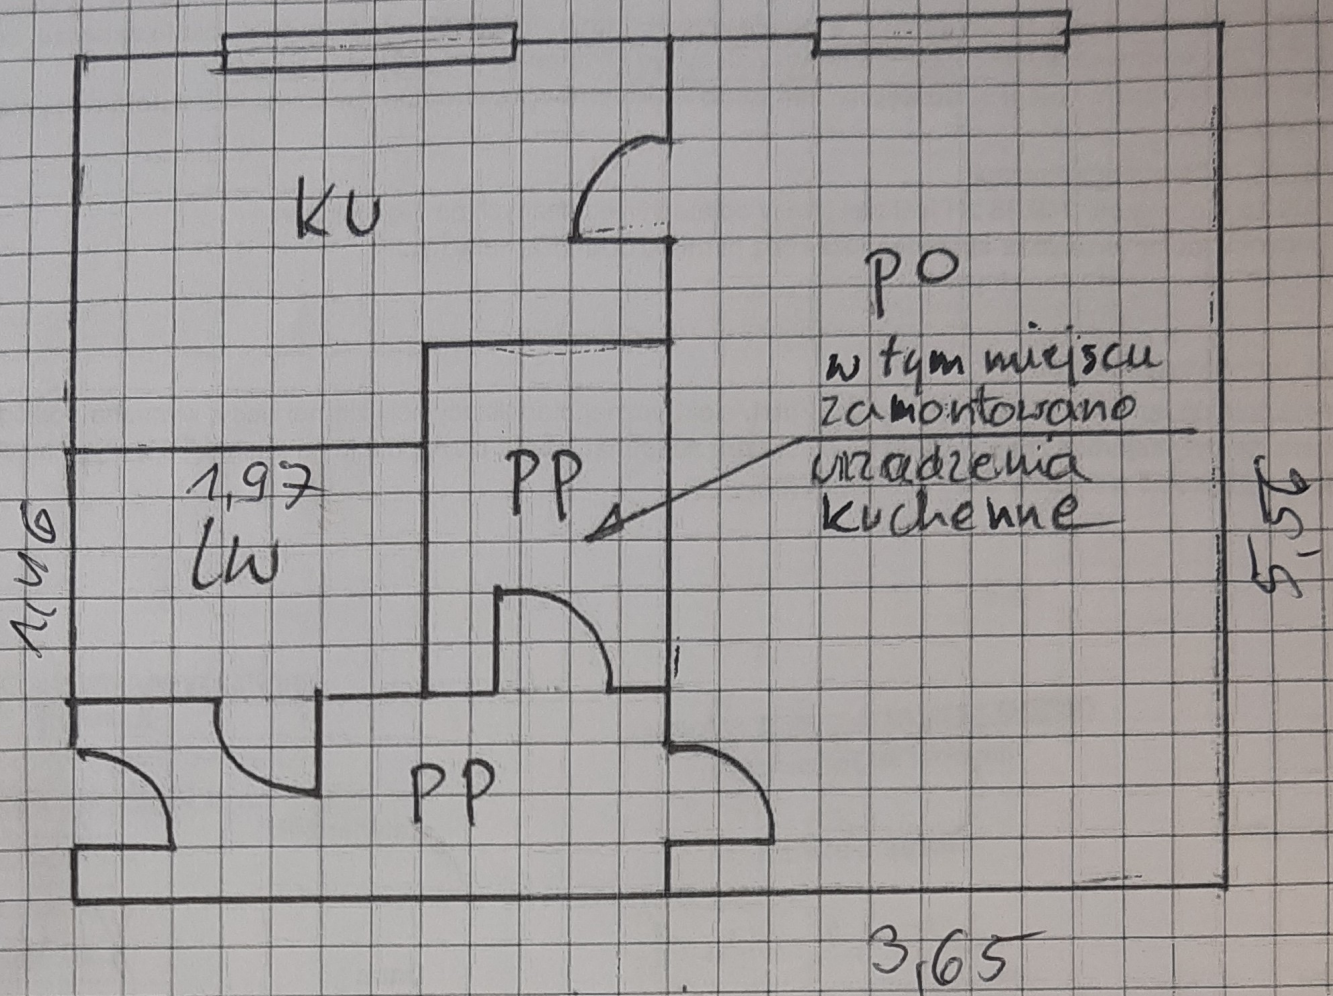 KU
PO
w tym miejscu
zamontowano
urządzenia
kuchenne
1,97
LW
PP
1,46
5,52
PP
3,65